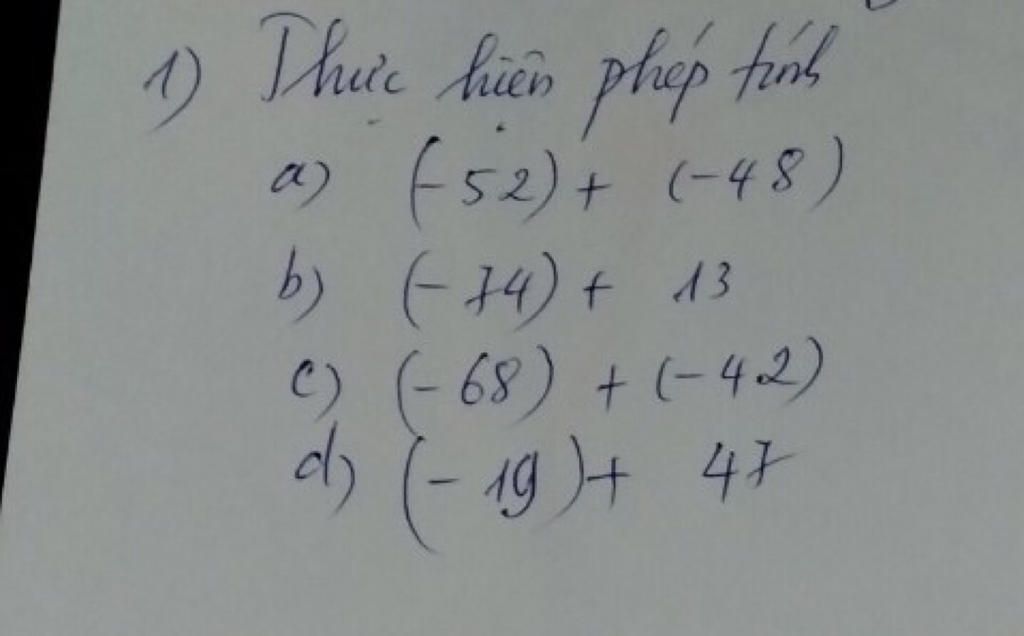 1) Thực hiện phép tính
a) (-52) + (-48)
b) (-74) + 13
c) (-68) + (-42)
d) (-19) + 47